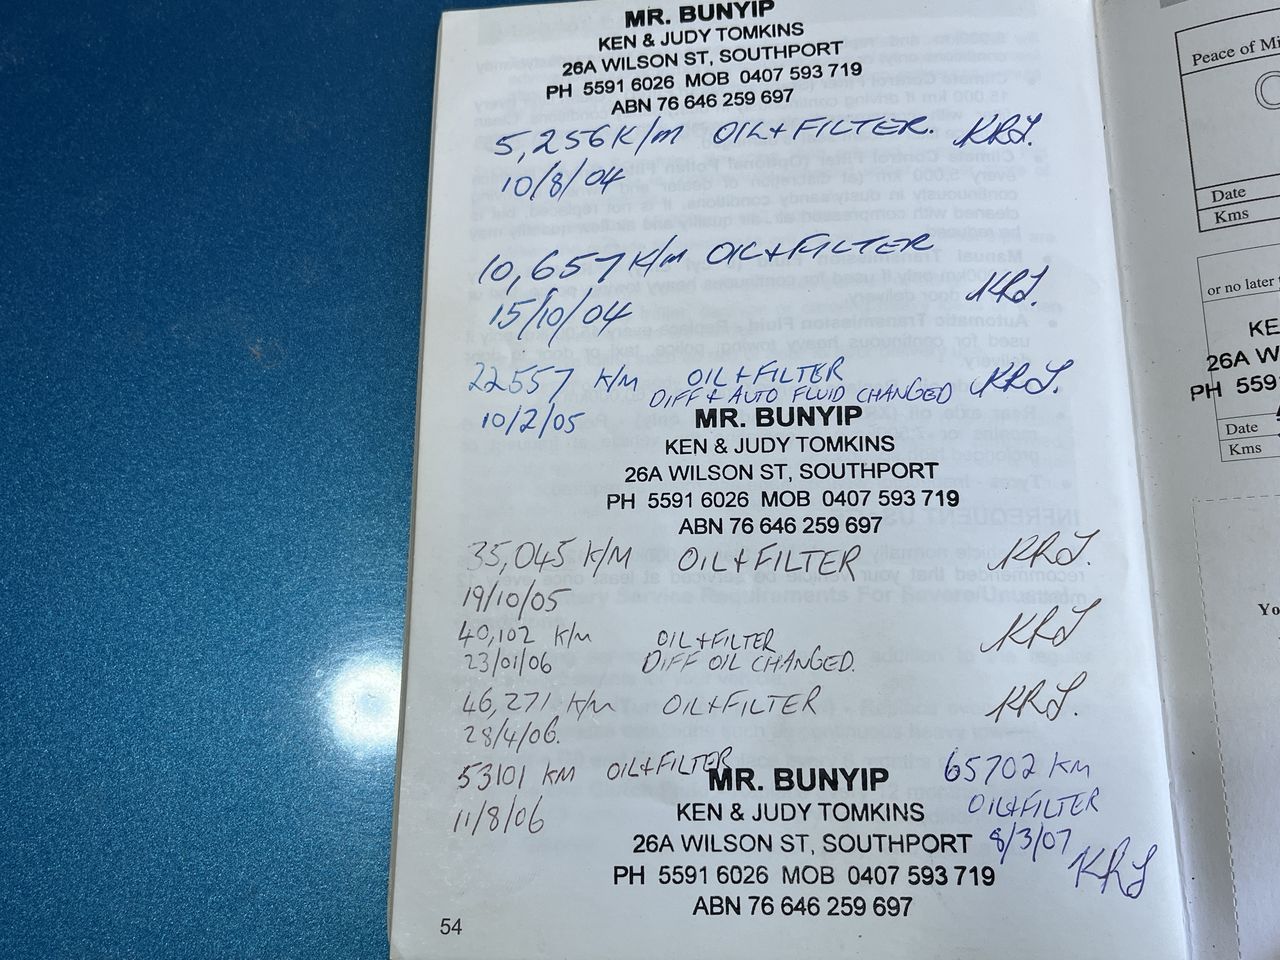 MR. BUNYIP
KEN & JUDY TOMKINS
26A WILSON ST, SOUTHPORT
PH 5591 6026 MOB 0407 593 719
ABN 76 646 259 697
5,256K/m OIL+FILTER. KRJ.
10/8/04
10,657 K/m OIL+FILTER
KRJ.
15/10/04
22557 K/m OIL+FILTER KRJ.
DIFF & AUTO FLUID CHANGED
10/2/05
MR. BUNYIP
KEN & JUDY TOMKINS
26A WILSON ST, SOUTHPORT
PH 5591 6026 MOB 0407 593 719
ABN 76 646 259 697
35,045 K/M OIL+FILTER KRJ.
19/10/05
40,102 K/m OIL+FILTER KRJ
23/01/06 DIFF OIL CHANGED.
46,271 K/m OIL+FILTER KRJ.
28/4/06.
53101 KM OIL+FILTER
11/8/06
MR. BUNYIP
KEN & JUDY TOMKINS
26A WILSON ST, SOUTHPORT
PH 5591 6026 MOB 0407 593 719
ABN 76 646 259 697
65702 KM
OIL+FILTER
8/3/07
KRJ
54
Peace of Mi
Date
Kms
or no later
KE
26A W
PH 559
Date
Kms
Yo